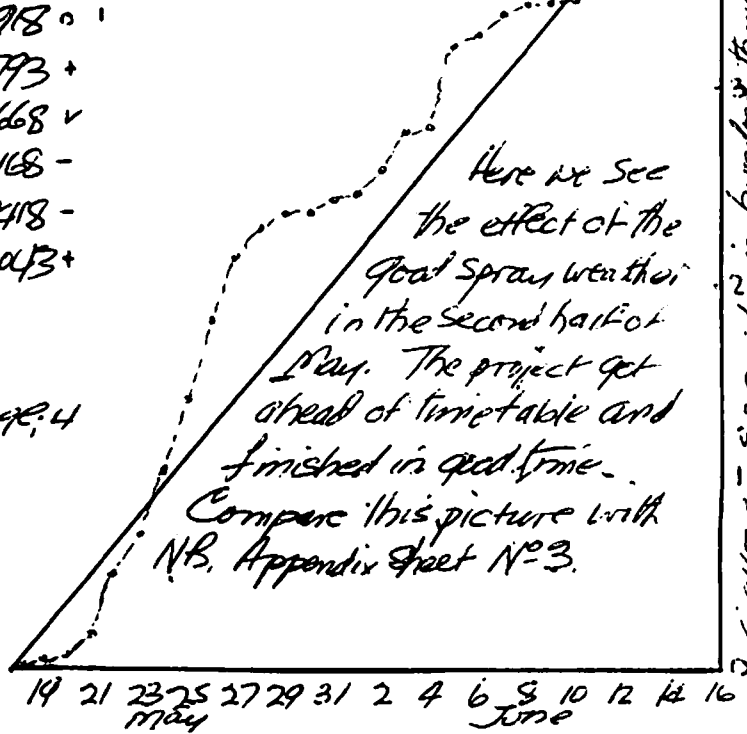 918
793 +
668 v
168 -
418 -
043 +
4
Here we see
the effect of the
good spray weather
in the second half of
May. The project got
ahead of timetable and
finished in good time.
Compare this picture with
NB. Appendix Sheet Nº 3.
19 21 23 25 27 29 31 2 4 6 8 10 12 14 16
May June